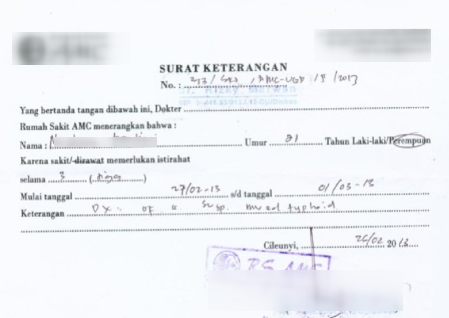 AMC
SURAT KETERANGAN
No. : 273/ SKS / AMC-UGD / 8 / 2013
Yang bertanda tangan dibawah ini, Dokter
Rumah Sakit AMC menerangkan bahwa :
Nama : Umur 21 Tahun Laki-laki/Perempuan
Karena sakit/dirawat memerlukan istirahat
selama 3 (tiga)
Mulai tanggal 27/02-13 s/d tanggal 01/03-13
Keterangan Dx. of a susp. typhoid
Cileunyi, 26/02 2013
RS AMC